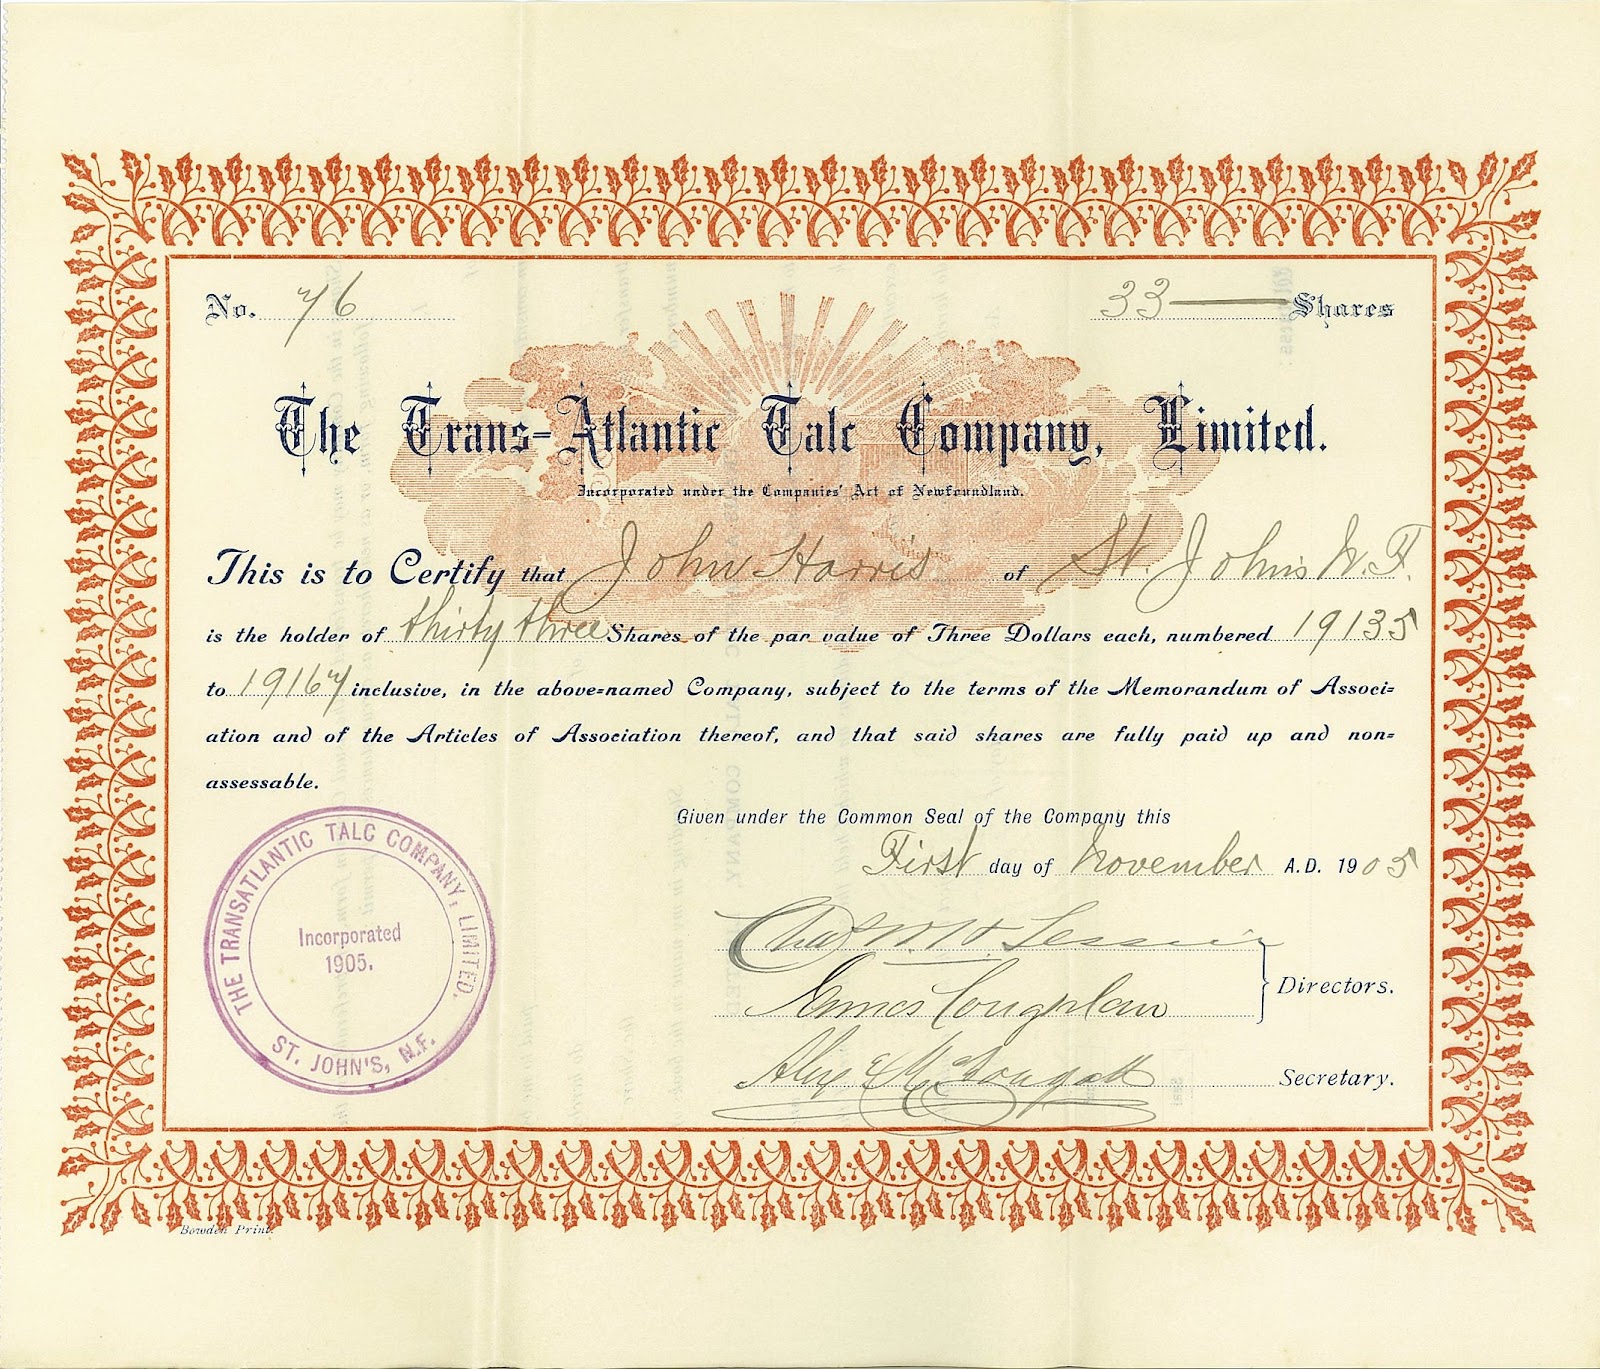 No. 76
33 — Shares
The Trans-Atlantic Talc Company, Limited.
Incorporated under the Companies' Act of Newfoundland.
This is to Certify that John Harris of St. John's N.F.
is the holder of thirty three Shares of the par value of Three Dollars each, numbered 19135
to 19167 inclusive, in the above=named Company, subject to the terms of the Memorandum of Associ=
ation and of the Articles of Association thereof, and that said shares are fully paid up and non=
assessable.
Given under the Common Seal of the Company this
First day of November A.D. 1905
James Coughlan
Directors.
Secretary.
THE TRANSATLANTIC TALC COMPANY, LIMITED.
Incorporated
1905.
ST. JOHN'S, N.F.
Bowden Print.